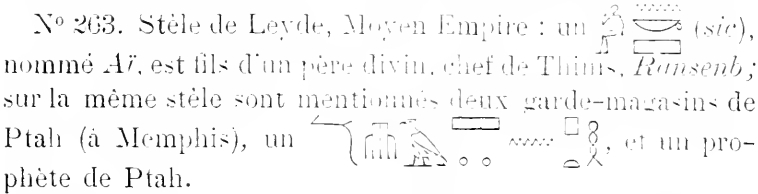 N° 263. Stèle de Leyde, Moyen Empire : un (sic),
nommé Aï, est fils d'un père divin, chef de Thinis, Ransenb;
sur la même stèle sont mentionnés deux garde-magasins de
Ptah (à Memphis), un , et un pro-
phète de Ptah.